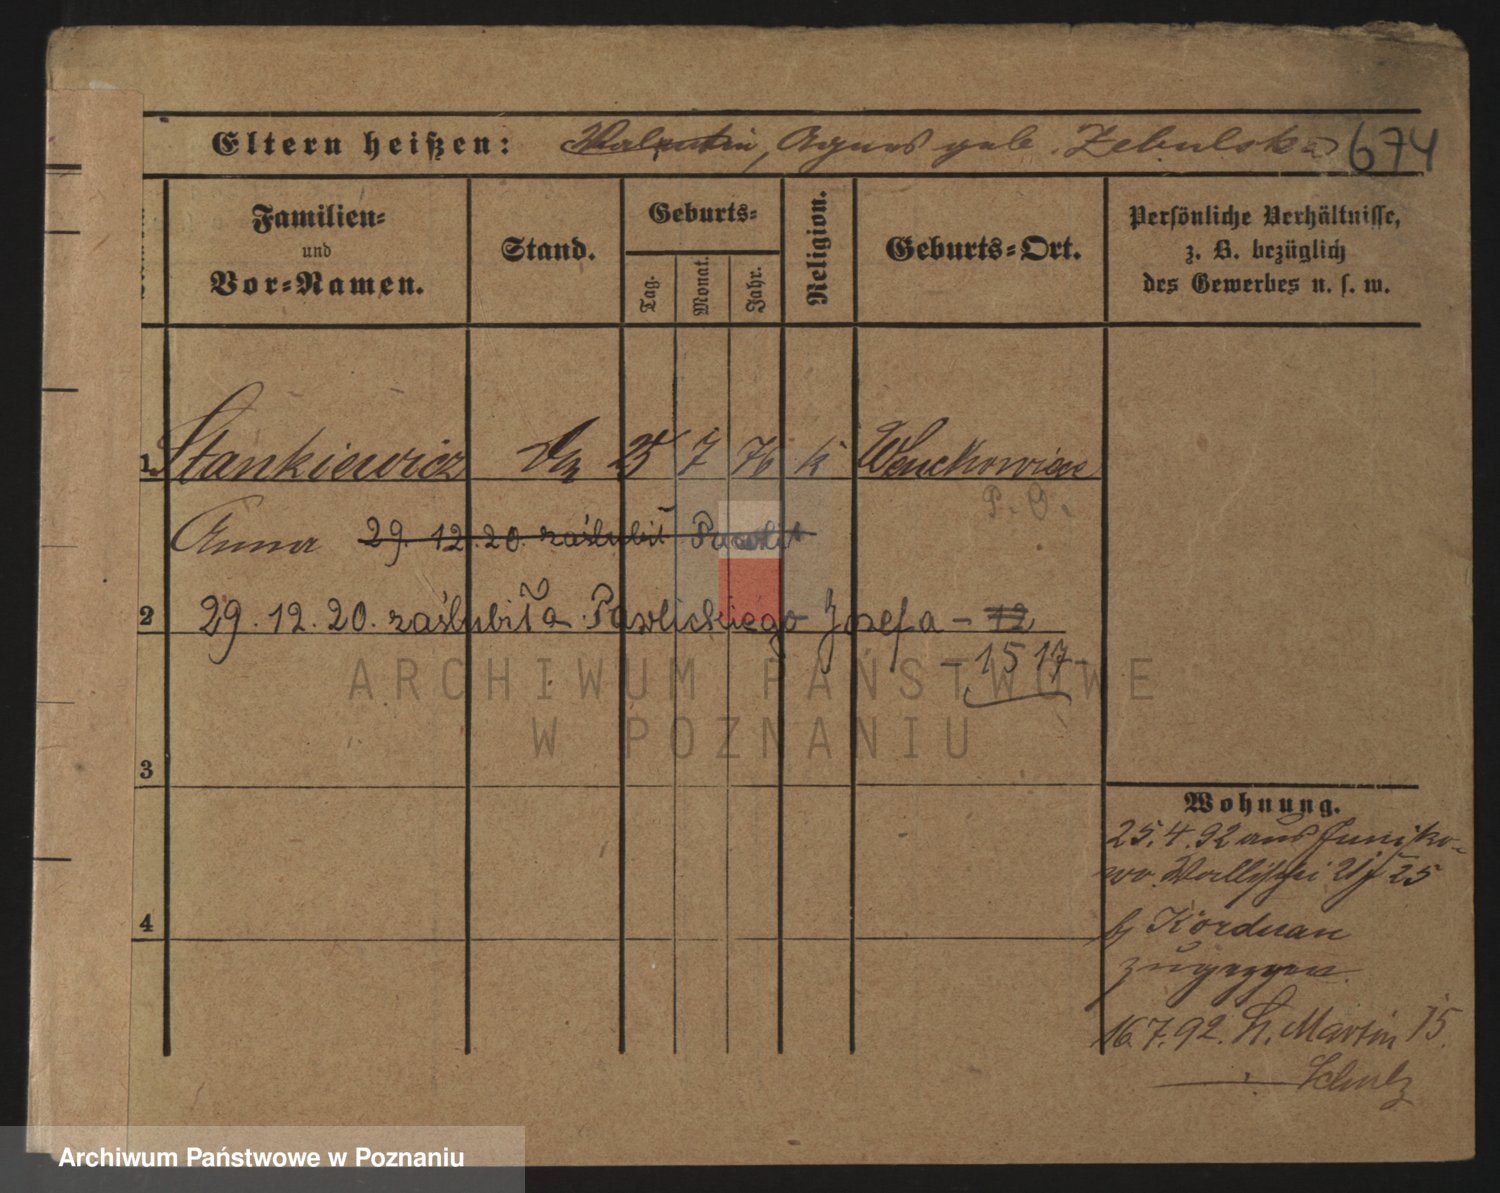 Eltern heißen: Valentin, Agnes geb. Zebulska 674
Familien=
und
Vor=Namen.
Stand.
Geburts=
Tag.
Monat.
Jahr.
Religion.
Geburts=Ort.
Persönliche Verhältnisse,
z. B. bezüglich
des Gewerbes u. s. w.
1 Stankiewicz 25 7 76 k
P. O.
Anna 29. 12. 20. zaślubił
2 29. 12. 20. zaślubiła Pawlickiego Józefa – 12
– 15 17 –
3
4
Wohnung.
25. 4. 92 aus Juniko-
wo. Wallischei 25
b/ Korduan
zugezogen.
16. 7. 92. St. Martin 75.
Schulz
ARCHIWUM PAŃSTWOWE
W POZNANIU
Archiwum Państwowe w Poznaniu